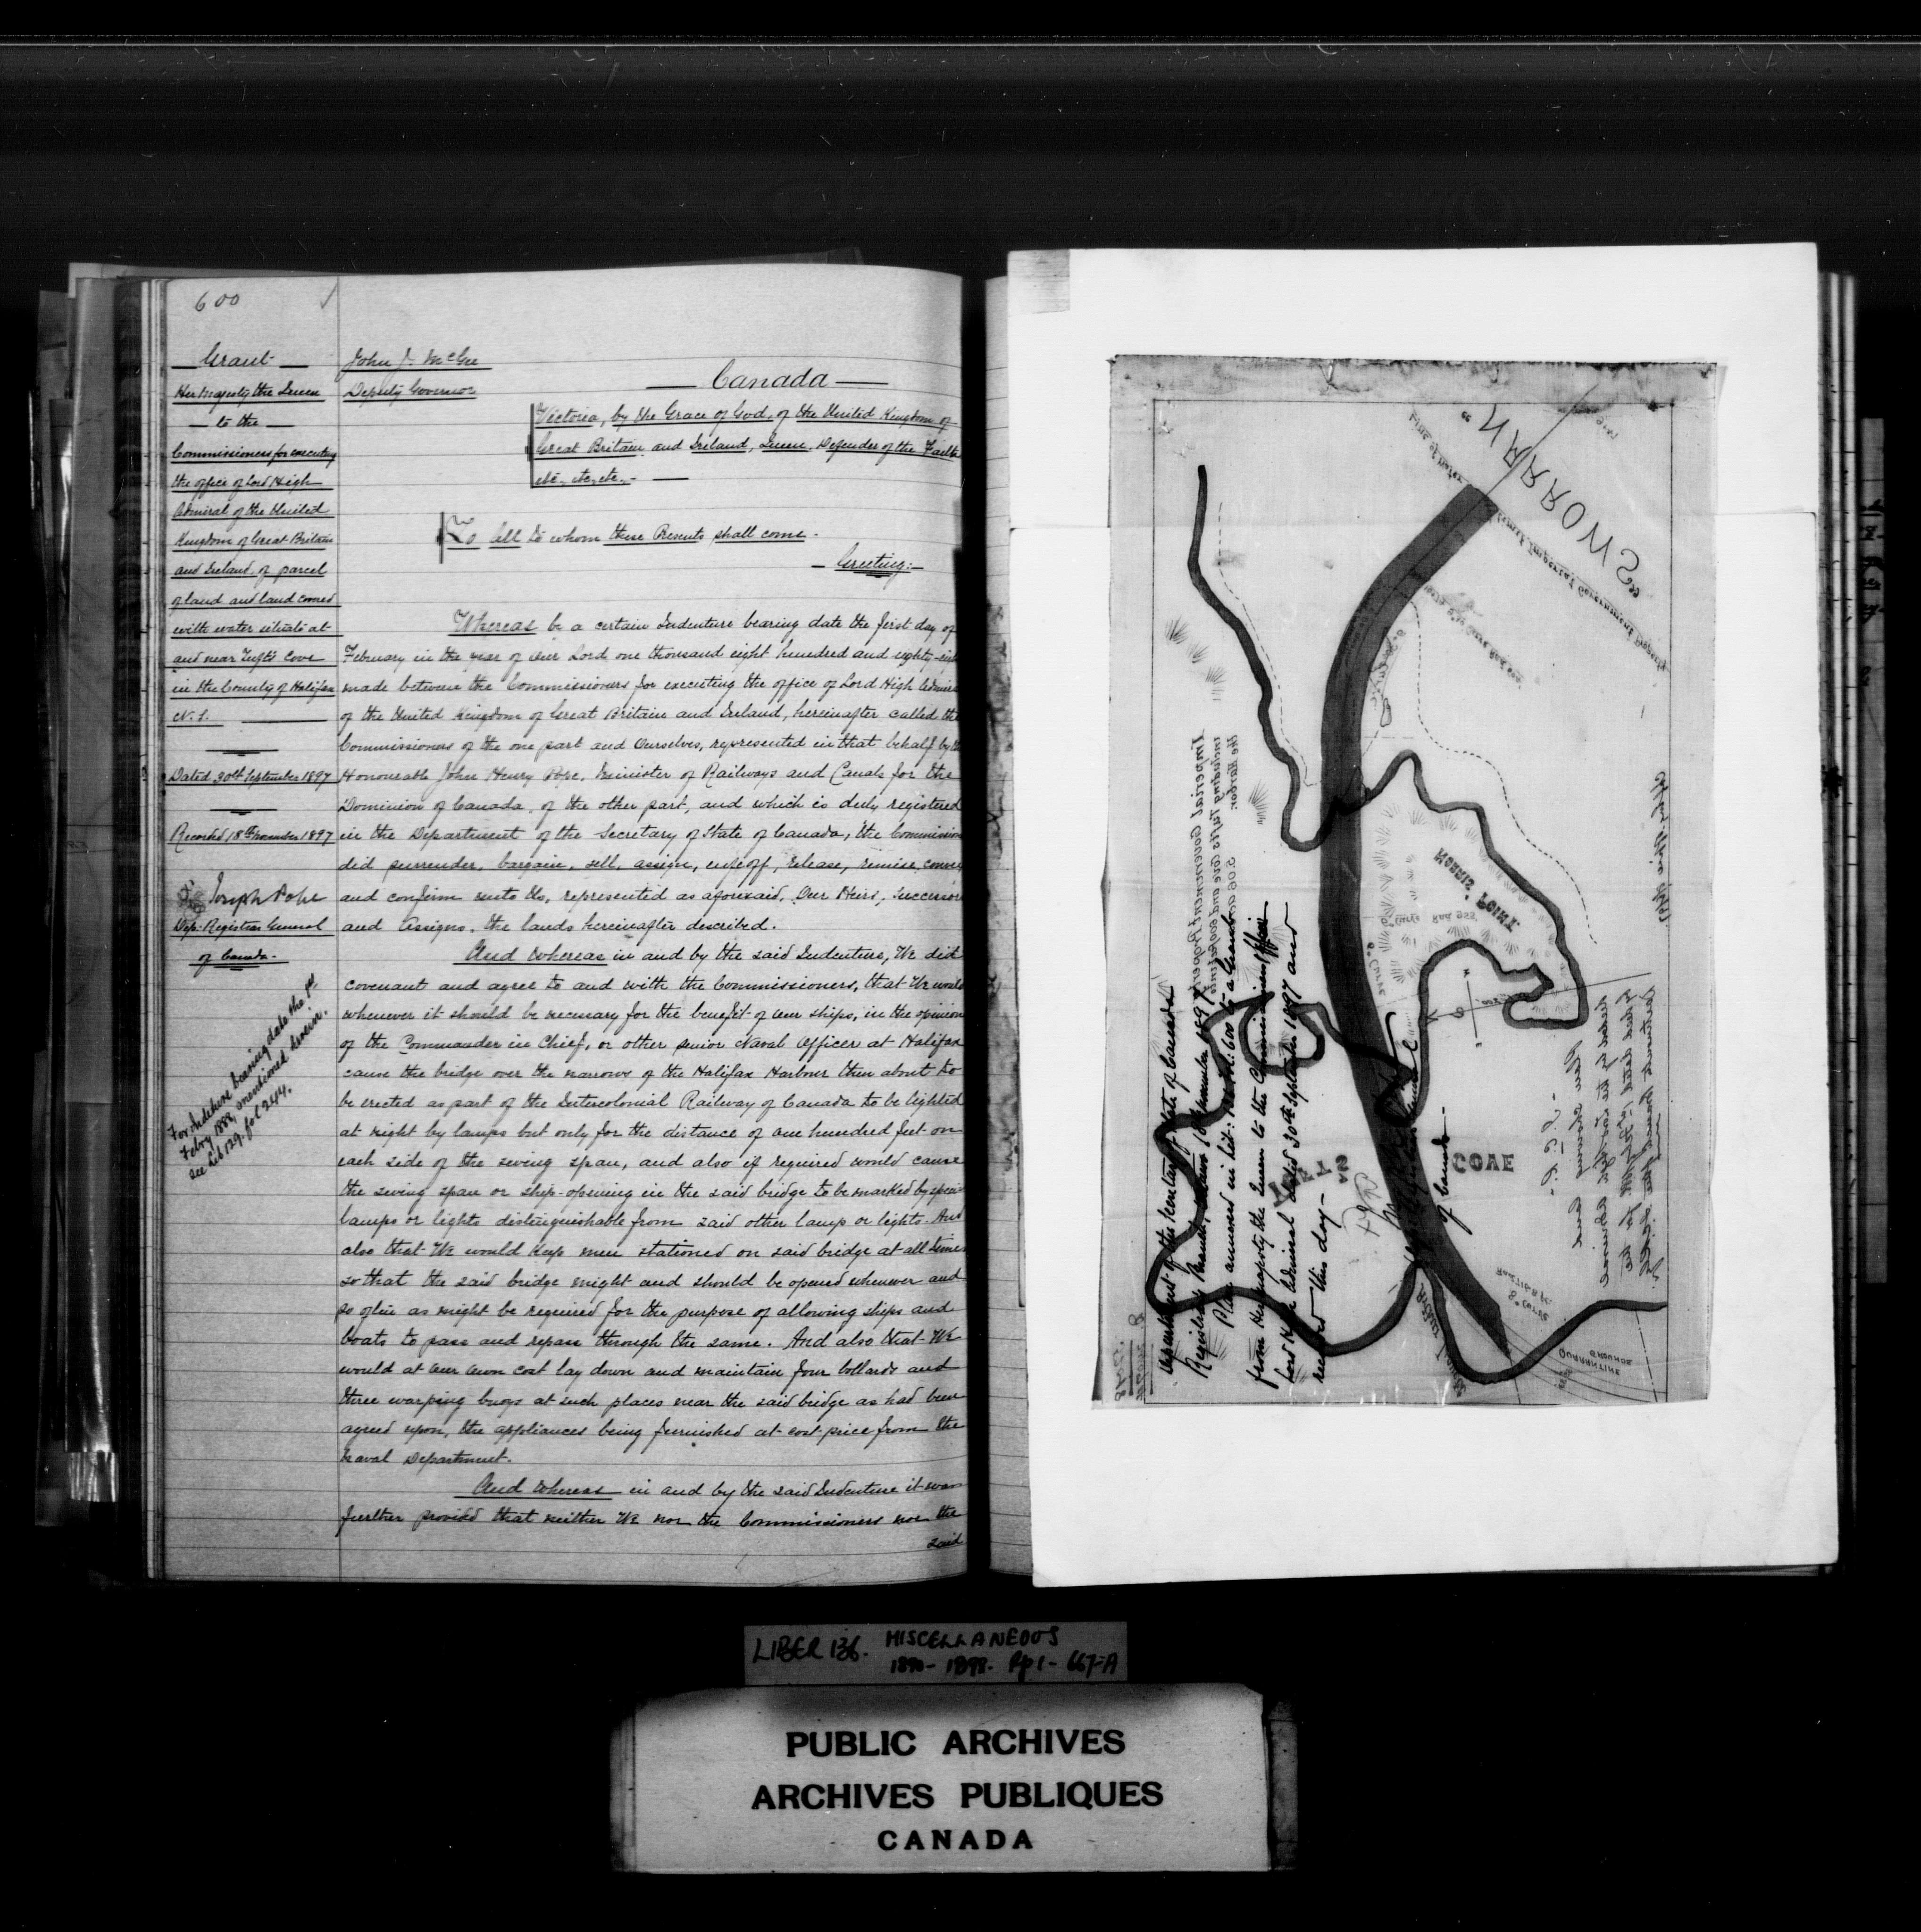 600
Grant
Her Majesty the Queen
to the
Commissioners for executing
the office of Lord High
Admiral of the United
Kingdom of Great Britain
and Ireland, of parcel
of land and land covered
with water situate at
and near Tuft's Cove
in the County of Halifax
N.S.
Dated 30th September 1897
Recorded 18th November 1897
Joseph Pope
Dep: Registrar General
of Canada.
For Indenture bearing date the 1st
Febry 1888, mentioned herein,
see Lib 129. fol 244.
John J. McGee
Deputy Governor
Canada
Victoria, by the Grace of God, of the United Kingdom of
Great Britain and Ireland, Queen, Defender of the Faith
etc., etc., etc.
To All to whom these Presents shall come.
Greeting:
Whereas be a certain Indenture bearing date the first day of
February in the year of Our Lord one thousand eight hundred and eighty-
made between the Commissioners for executing the office of Lord High Admiral
of the United Kingdom of Great Britain and Ireland, hereinafter called the
Commissioners of the one part and Ourselves, represented in that behalf by the
Honourable John Henry Pope, Minister of Railways and Canals for the
Dominion of Canada, of the other part, and which is duly registered
in the Department of the Secretary of State of Canada, the Commissioners
did surrender, bargain, sell, assign, enfeoff, release, remise, convey
and confirm unto Us, represented as aforesaid, Our Heirs, Successors
and Assigns, the lands hereinafter described.
And Whereas in and by the said Indenture, We did
covenant and agree to and with the Commissioners, that We would
whenever it should be necessary for the benefit of Our ships, in the opinion
of the Commander in Chief, or other senior Naval Officer at Halifax
cause the bridge over the narrows of the Halifax Harbour then about to
be erected as part of the Intercolonial Railway of Canada to be lighted
at night by lamps but only for the distance of one hundred feet on
each side of the swing span, and also if required would cause
the swing span or ship-opening in the said bridge to be marked by special
lamps or lights distinguishable from said other lamp or lights. And
also that We would keep men stationed on said bridge at all times
so that the said bridge might and should be opened whenever and
so often as might be required for the purpose of allowing ships and
boats to pass and repass through the same. And also that We
would at Our own cost lay down and maintain four bollards and
three warping buoys at such places near the said bridge as had been
agreed upon, the appliances being furnished at cost price from the
Naval Department.
And Whereas in and by the said Indenture it was
further provided that neither We nor the Commissioners nor the
said
NARROWS
Limit Imperial Government Property
Imperial Government Property
including Tuft's Cove and
the Harbor. 5.06 acres
MORRIS' POINT
8° Curve Rad 955
TUFTS
COVE
QUARANTINE
GROUNDS
Department of the Secretary of State of Canada
Registrar's Branch, Ottawa 18 November 1897
Plan annexed in Lib: 136 fol: 600 to a Grant
from Her Majesty the Queen to the Commissioners
Lord High Admiral dated 30th September 1897 and
recorded this day
of Canada
LIBER 136. MISCELLANEOUS
1890-1898. Pp 1-667-A
PUBLIC ARCHIVES
ARCHIVES PUBLIQUES
CANADA